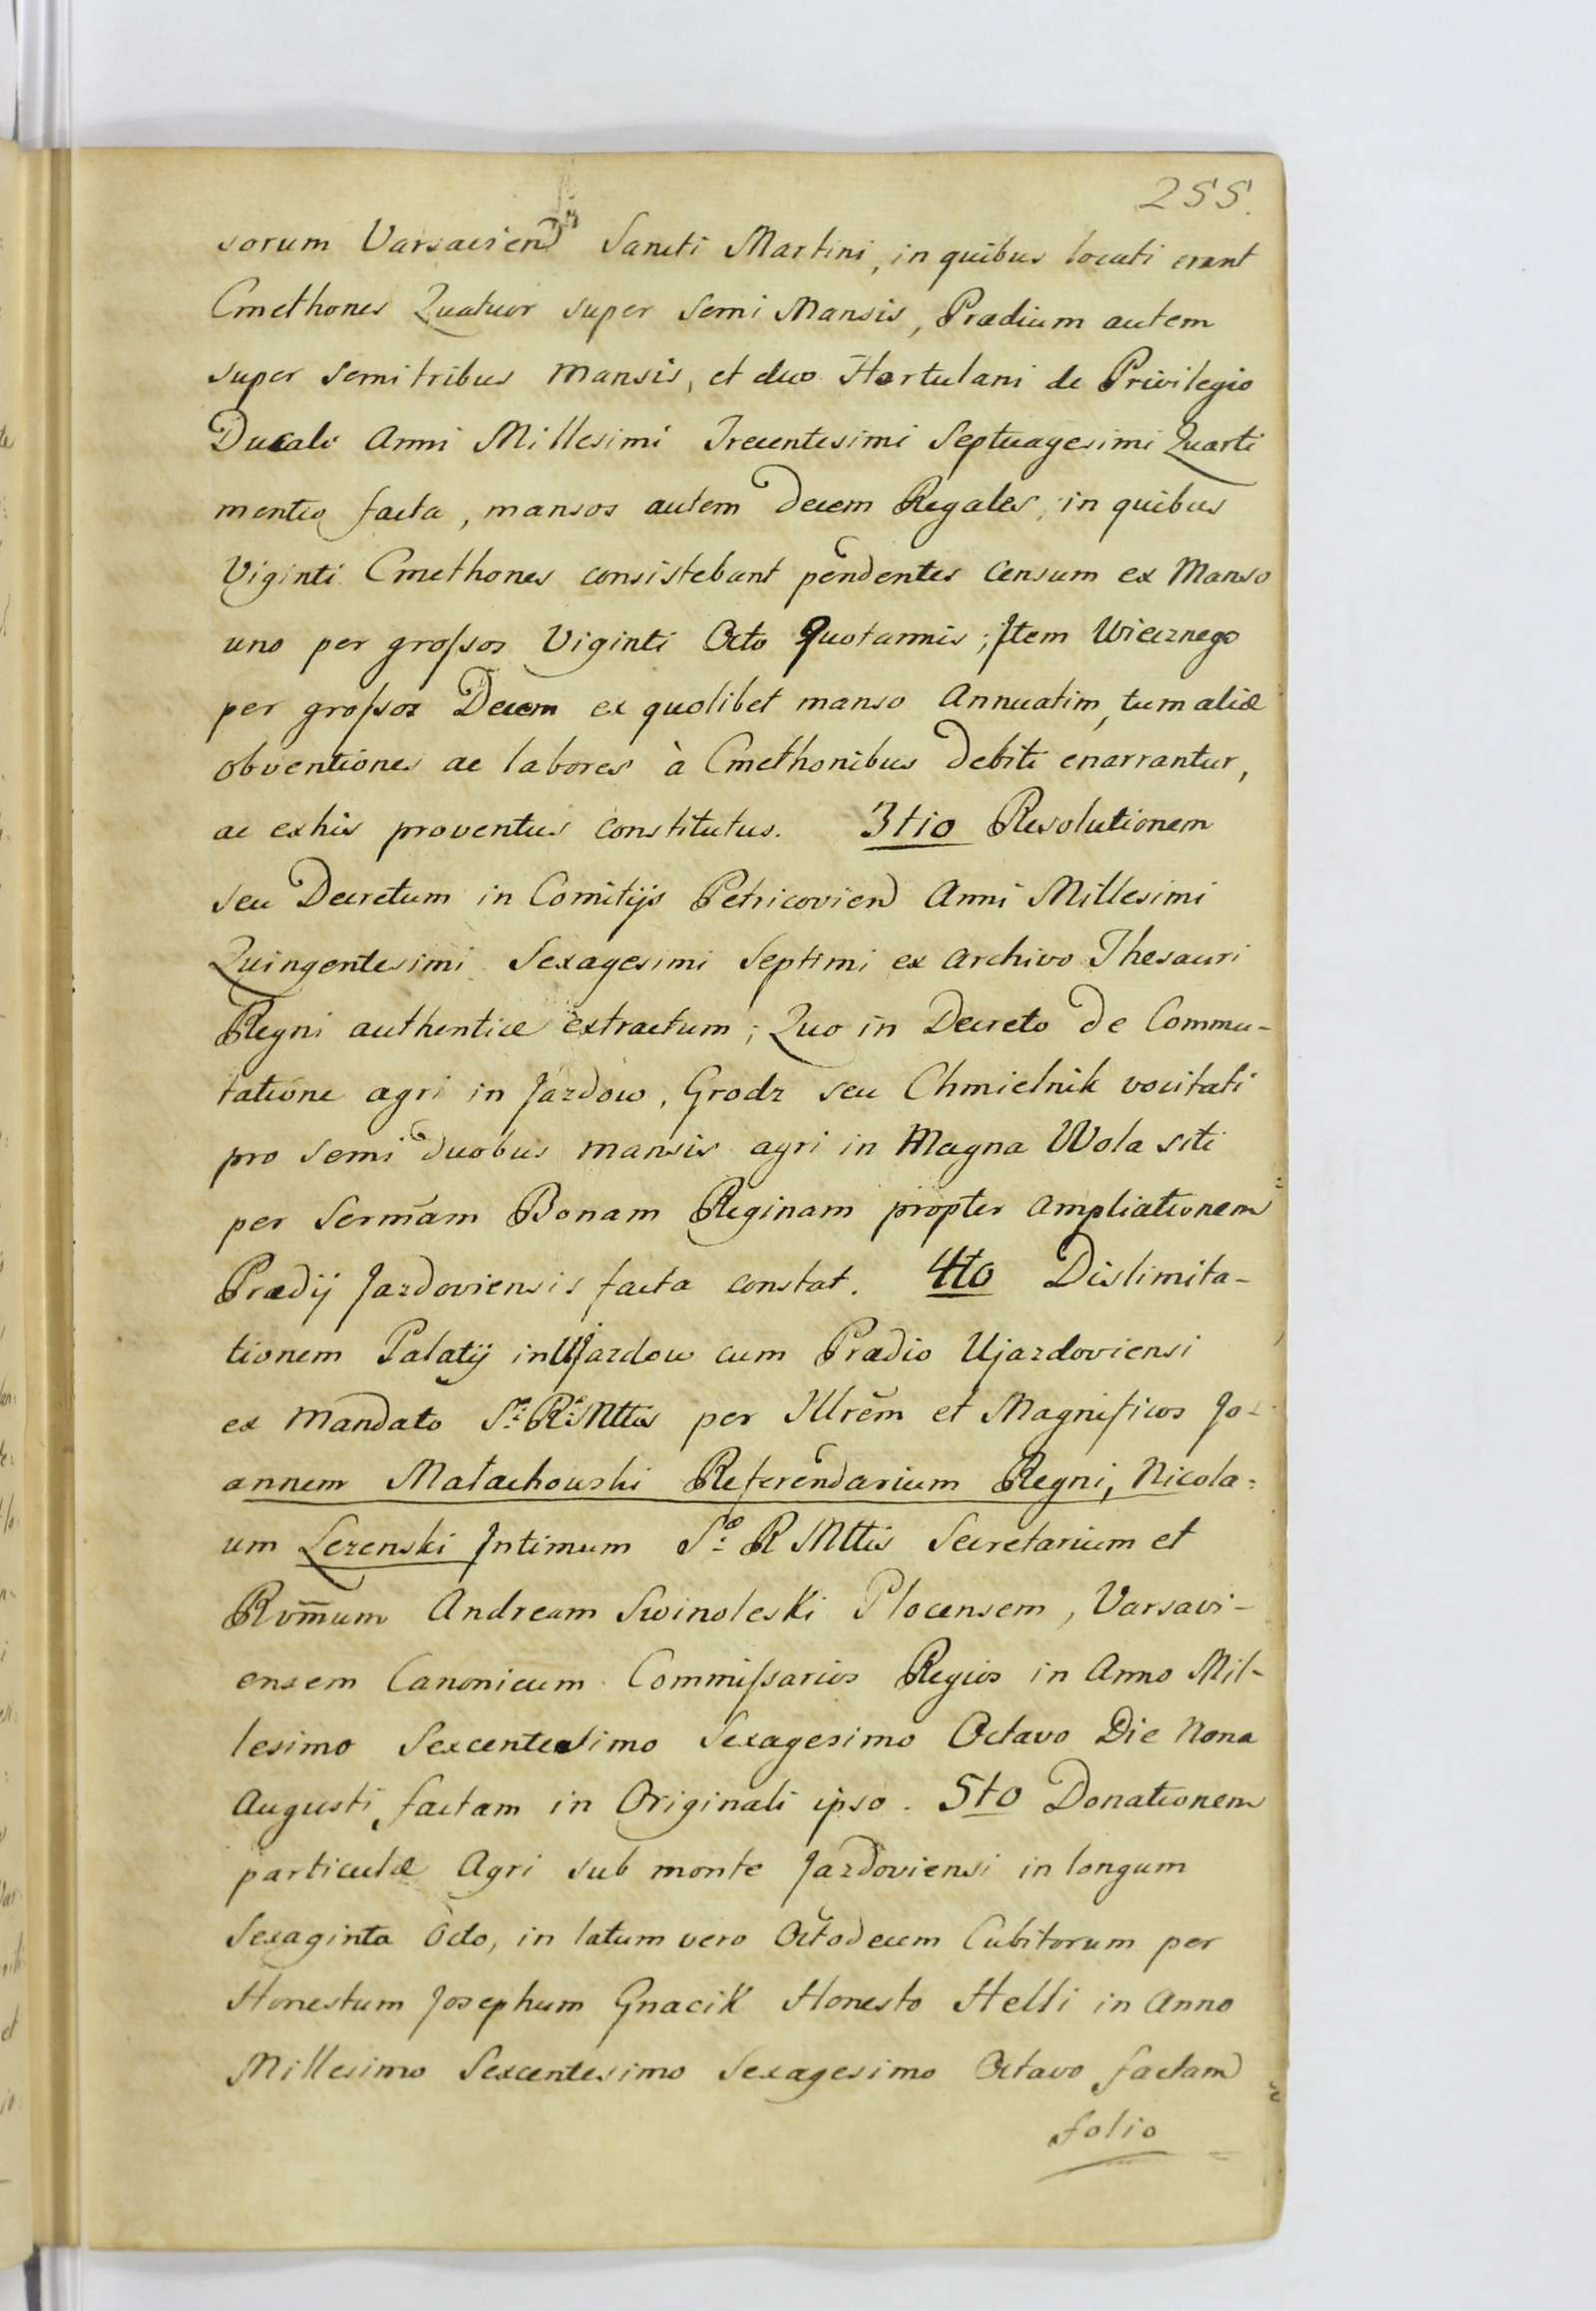 255.
sorum Varsavien Sancti Martini, in quibus locati erant
Cmethones Quatuor super semi Mansis, Prædium autem
super semitribus mansis, et duo Hortulani de Privilegio
Ducali Anni Millesimi Trecentesimi Septuagesimi Quarti
mentio facta, mansos autem Decem Regales, in quibus
Viginti Cmethones consistebant pendentes Censum ex Manso
uno per grossos Viginti Octo Quotannis; Item Wiecznego
per grossos Decem ex quolibet manso Annuatim, tum aliæ
obventiones ac labores à Cmethonibus Debiti enarrantur,
ac ex his proventus constitutus. 3tio Resolutionem
seu Decretum in Comitijs Petricovien Anni Millesimi
Quingentesimi Sexagesimi Septimi ex Archivo Thesauri
Regni authentice extractum; Quo in Decreto de Commu-
tatione agri in Jazdow, Grodz seu Chmielnik vocitati
pro semi duobus mansis agri in Magna Wola siti
per Sermam Bonam Reginam propter ampliationem
Prædij Jazdoviensis facta constat. 4to Dislimita-
tionem Palatij in Ujazdow cum Prædio Ujazdoviensi
ex Mandato Sæ: Ræ: Mttis per Illrem et Magnificos Jo-
annem Małachowski Referendarium Regni, Nicola-
um Lezenski Intimum Sæ: R Mttis Secretarium et
Rvm̄um Andream Swinoleski Plocensem, Varsavi-
ensem Canonicum Commissarios Regios in Anno Mil-
lesimo Sexcentesimo Sexagesimo Octavo Die Nona
Augusti, factam in Originali ipso. 5to Donationem
particulæ Agri sub monte Jazdoviensi in longum
Sexaginta Octo, in latum vero Octodecem Cubitorum per
Honestum Josephum Gnacik Honesto Helli in Anno
Millesimo Sexcentesimo Sexagesimo Octavo factam
folio